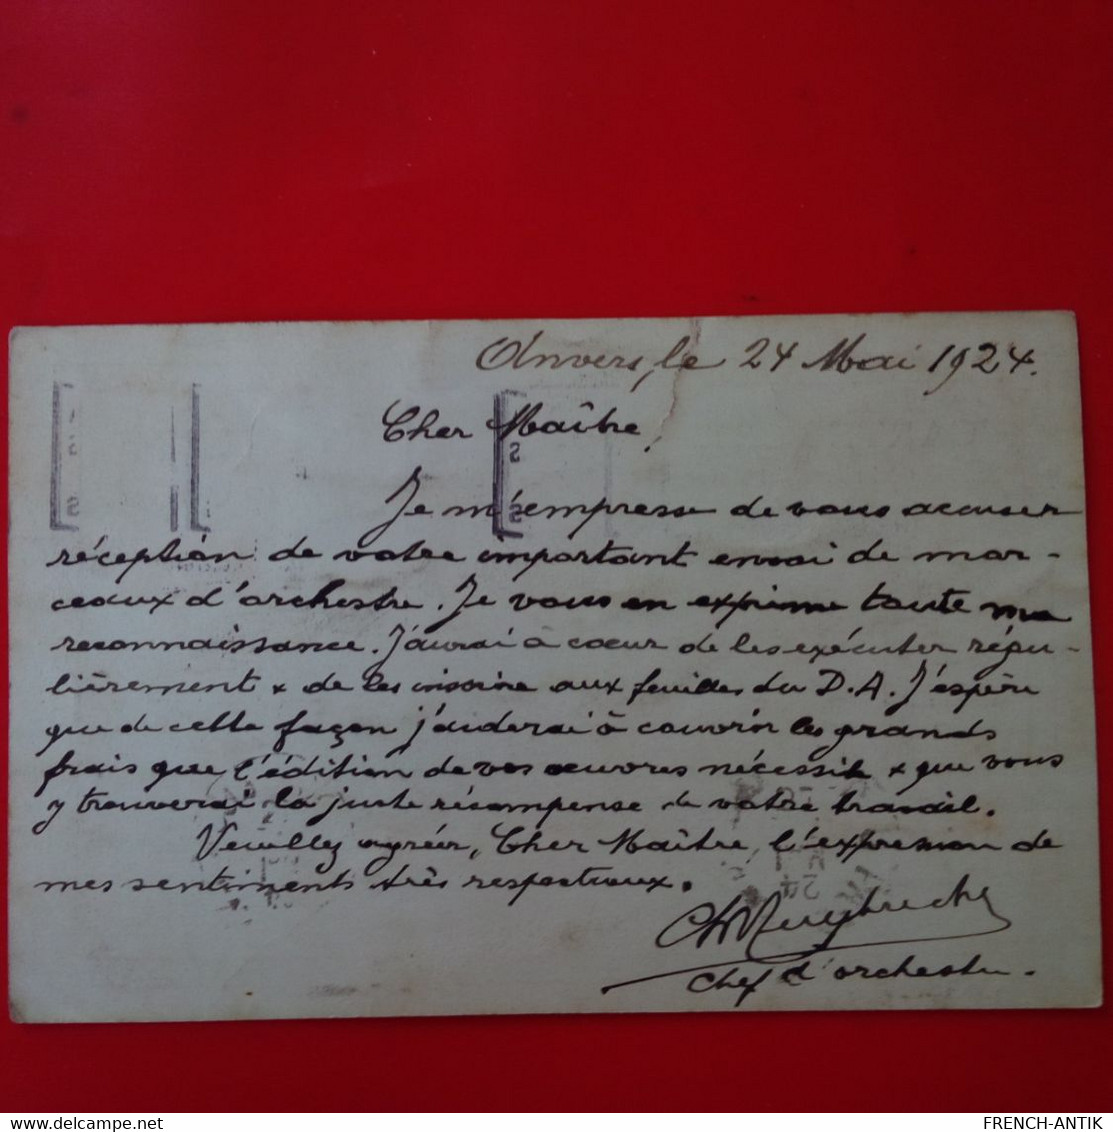 Anvers, le 24 Mai 1924.
Cher Maître,
Je m'empresse de vous accuser
réception de votre important envoi de mor-
ceaux d'orchestre. Je vous en exprime toute ma
reconnaissance. J'aurai à coeur de les exécuter régu-
lièrement & de les inscrire aux feuilles du D.A. J'espère
que de cette façon j'aiderai à couvrir les grands
frais que l'édition de vos oeuvres nécessite & que vous
y trouverai la juste récompense de votre travail.
Veuillez agréer, Cher Maître, l'expression de
mes sentiments très respectueux.
Chef d'orchestre.
FRENCH-ANTIK